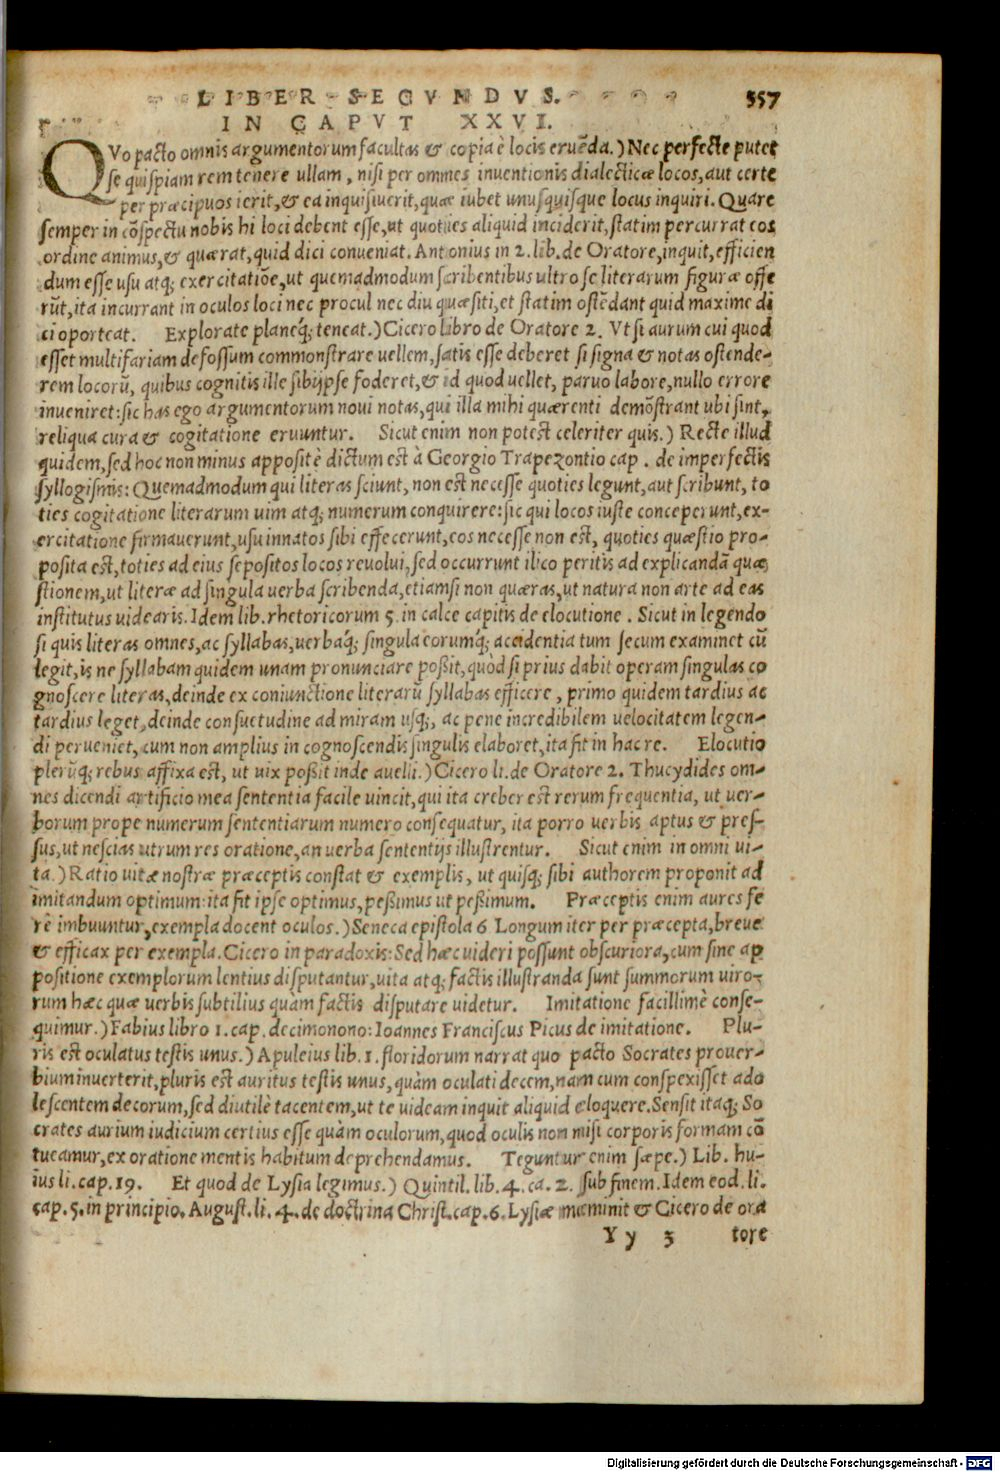 LIBER SECVNDVS. 557
IN CAPVT XXVI.
QVo pacto omnis argumentorum facultas & copia è locis eruẽda.) Nec perfecte putet
se quispiam rem tenere ullam, nisi per omnes inuentionis dialecticæ locos, aut certe
per præcipuos ierit, & ea inquisiuerit, quæ iubet unusquisque locus inquiri. Quare
semper in cõspectu nobis hi loci debent esse, ut quoties aliquid inciderit, statim percurrat eos
ordine animus, & quærat, quid dici conueniat. Antonius in 2. lib. de Oratore, inquit, efficien
dum esse usu atq; exercitatiõe, ut quemadmodum scribentibus ultro se literarum figuræ offe
rũt, ita incurrant in oculos loci nec procul nec diu quæsiti, et statim ostẽdant quid maxime di
ci oporteat. Explorate planeq; teneat.) Cicero libro de Oratore 2. Vt si aurum cui quod
esset multifariam defossum commonstrare uellem, satis esse deberet si signa & notas ostende-
rem locorũ, quibus cognitis ille sibijpse foderet, & id quod uellet, paruo labore, nullo errore
inueniret: sic has ego argumentorum noui notas, qui illa mihi quærenti demõstrant ubi sint,
reliqua cura & cogitatione eruuntur. Sicut enim non potest celeriter quis.) Recte illud
quidem, sed hoc non minus appositè dictum est à Georgio Trapezontio cap. de imperfectis
syllogismis: Quemadmodum qui literas sciunt, non est necesse quoties legunt, aut scribunt, to
ties cogitatione literarum uim atq; numerum conquirere: sic qui locos iuste conceperunt, ex-
ercitatione firmauerunt, usu innatos sibi effecerunt, eos necesse non est, quoties quæstio pro-
posita est, toties ad eius sepositos locos reuolui, sed occurrunt ilico peritis ad explicandã quæ
stionem, ut literæ ad singula uerba scribenda, etiamsi non quæras, ut natura non arte ad eas
institutus uidearis. Idem lib. rhetoricorum 5. in calce capitis de elocutione. Sicut in legendo
si quis literas omnes, ac syllabas, uerbaq́; singula eorumq́; accidentia tum secum examinet cũ
legit, is ne syllabam quidem unam pronunciare poßit, quòd si prius dabit operam singulas co
gnoscere literas, deinde ex coniunctione literarũ syllabas efficere, primo quidem tardius ac
tardius leget, deinde consuetudine ad miram usq;, ac pene incredibilem uelocitatem legen-
di perueniet, cum non amplius in cognoscendis singulis elaboret, ita fit in hac re. Elocutio
plerũq; rebus affixa est, ut uix poßit inde auelli.) Cicero li. de Oratore 2. Thucydides om-
nes dicendi artificio mea sententia facile uincit, qui ita creber est rerum frequentia, ut uer-
borum prope numerum sententiarum numero consequatur, ita porro uerbis aptus & pres-
sus, ut nescias utrum res oratione, an uerba sententijs illustrentur. Sicut enim in omni ui-
ta.) Ratio uitæ nostræ præceptis constat & exemplis, ut quisq; sibi authorem proponit ad
imitandum optimum: ita fit ipse optimus, peßimus ut peßimum. Præceptis enim aures fe
rè imbuuntur, exempla docent oculos.) Seneca epistola 6 Longum iter per præcepta, breue
& efficax per exempla. Cicero in paradoxis: Sed hæc uideri possunt obscuriora, cum sine ap
positione exemplorum lentius disputantur, uita atq; factis illustranda sunt summorum uiro-
rum hæc quæ uerbis subtilius quàm factis disputare uidetur. Imitatione facillimè conse-
quimur.) Fabius libro 1. cap. decimonono: Ioannes Franciscus Picus de imitatione. Plu-
ris est oculatus testis unus.) Apuleius lib. 1. floridorum narrat quo pacto Socrates prouer-
bium inuerterit, pluris est auritus testis unus, quàm oculati decem, nam cum conspexisset ado
lescentem decorum, sed diutilè tacentem, ut te uideam inquit aliquid eloquere. Sensit itaq; So
crates aurium iudicium certius esse quàm oculorum, quod oculis non nisi corporis formam cõ
tueamur, ex oratione mentis habitum deprehendamus. Teguntur enim sæpe.) Lib. hu-
ius li. cap. 19. Et quod de Lysia legimus.) Quintil. lib. 4. ca. 2. sub finem. Idem eod. li.
cap. 5. in principio. August. li. 4. de doctrina Christ. cap. 6. Lysiæ mæminit & Cicero de ora
Yy 3 tore
Digitalisierung gefördert durch die Deutsche Forschungsgemeinschaft - DFG